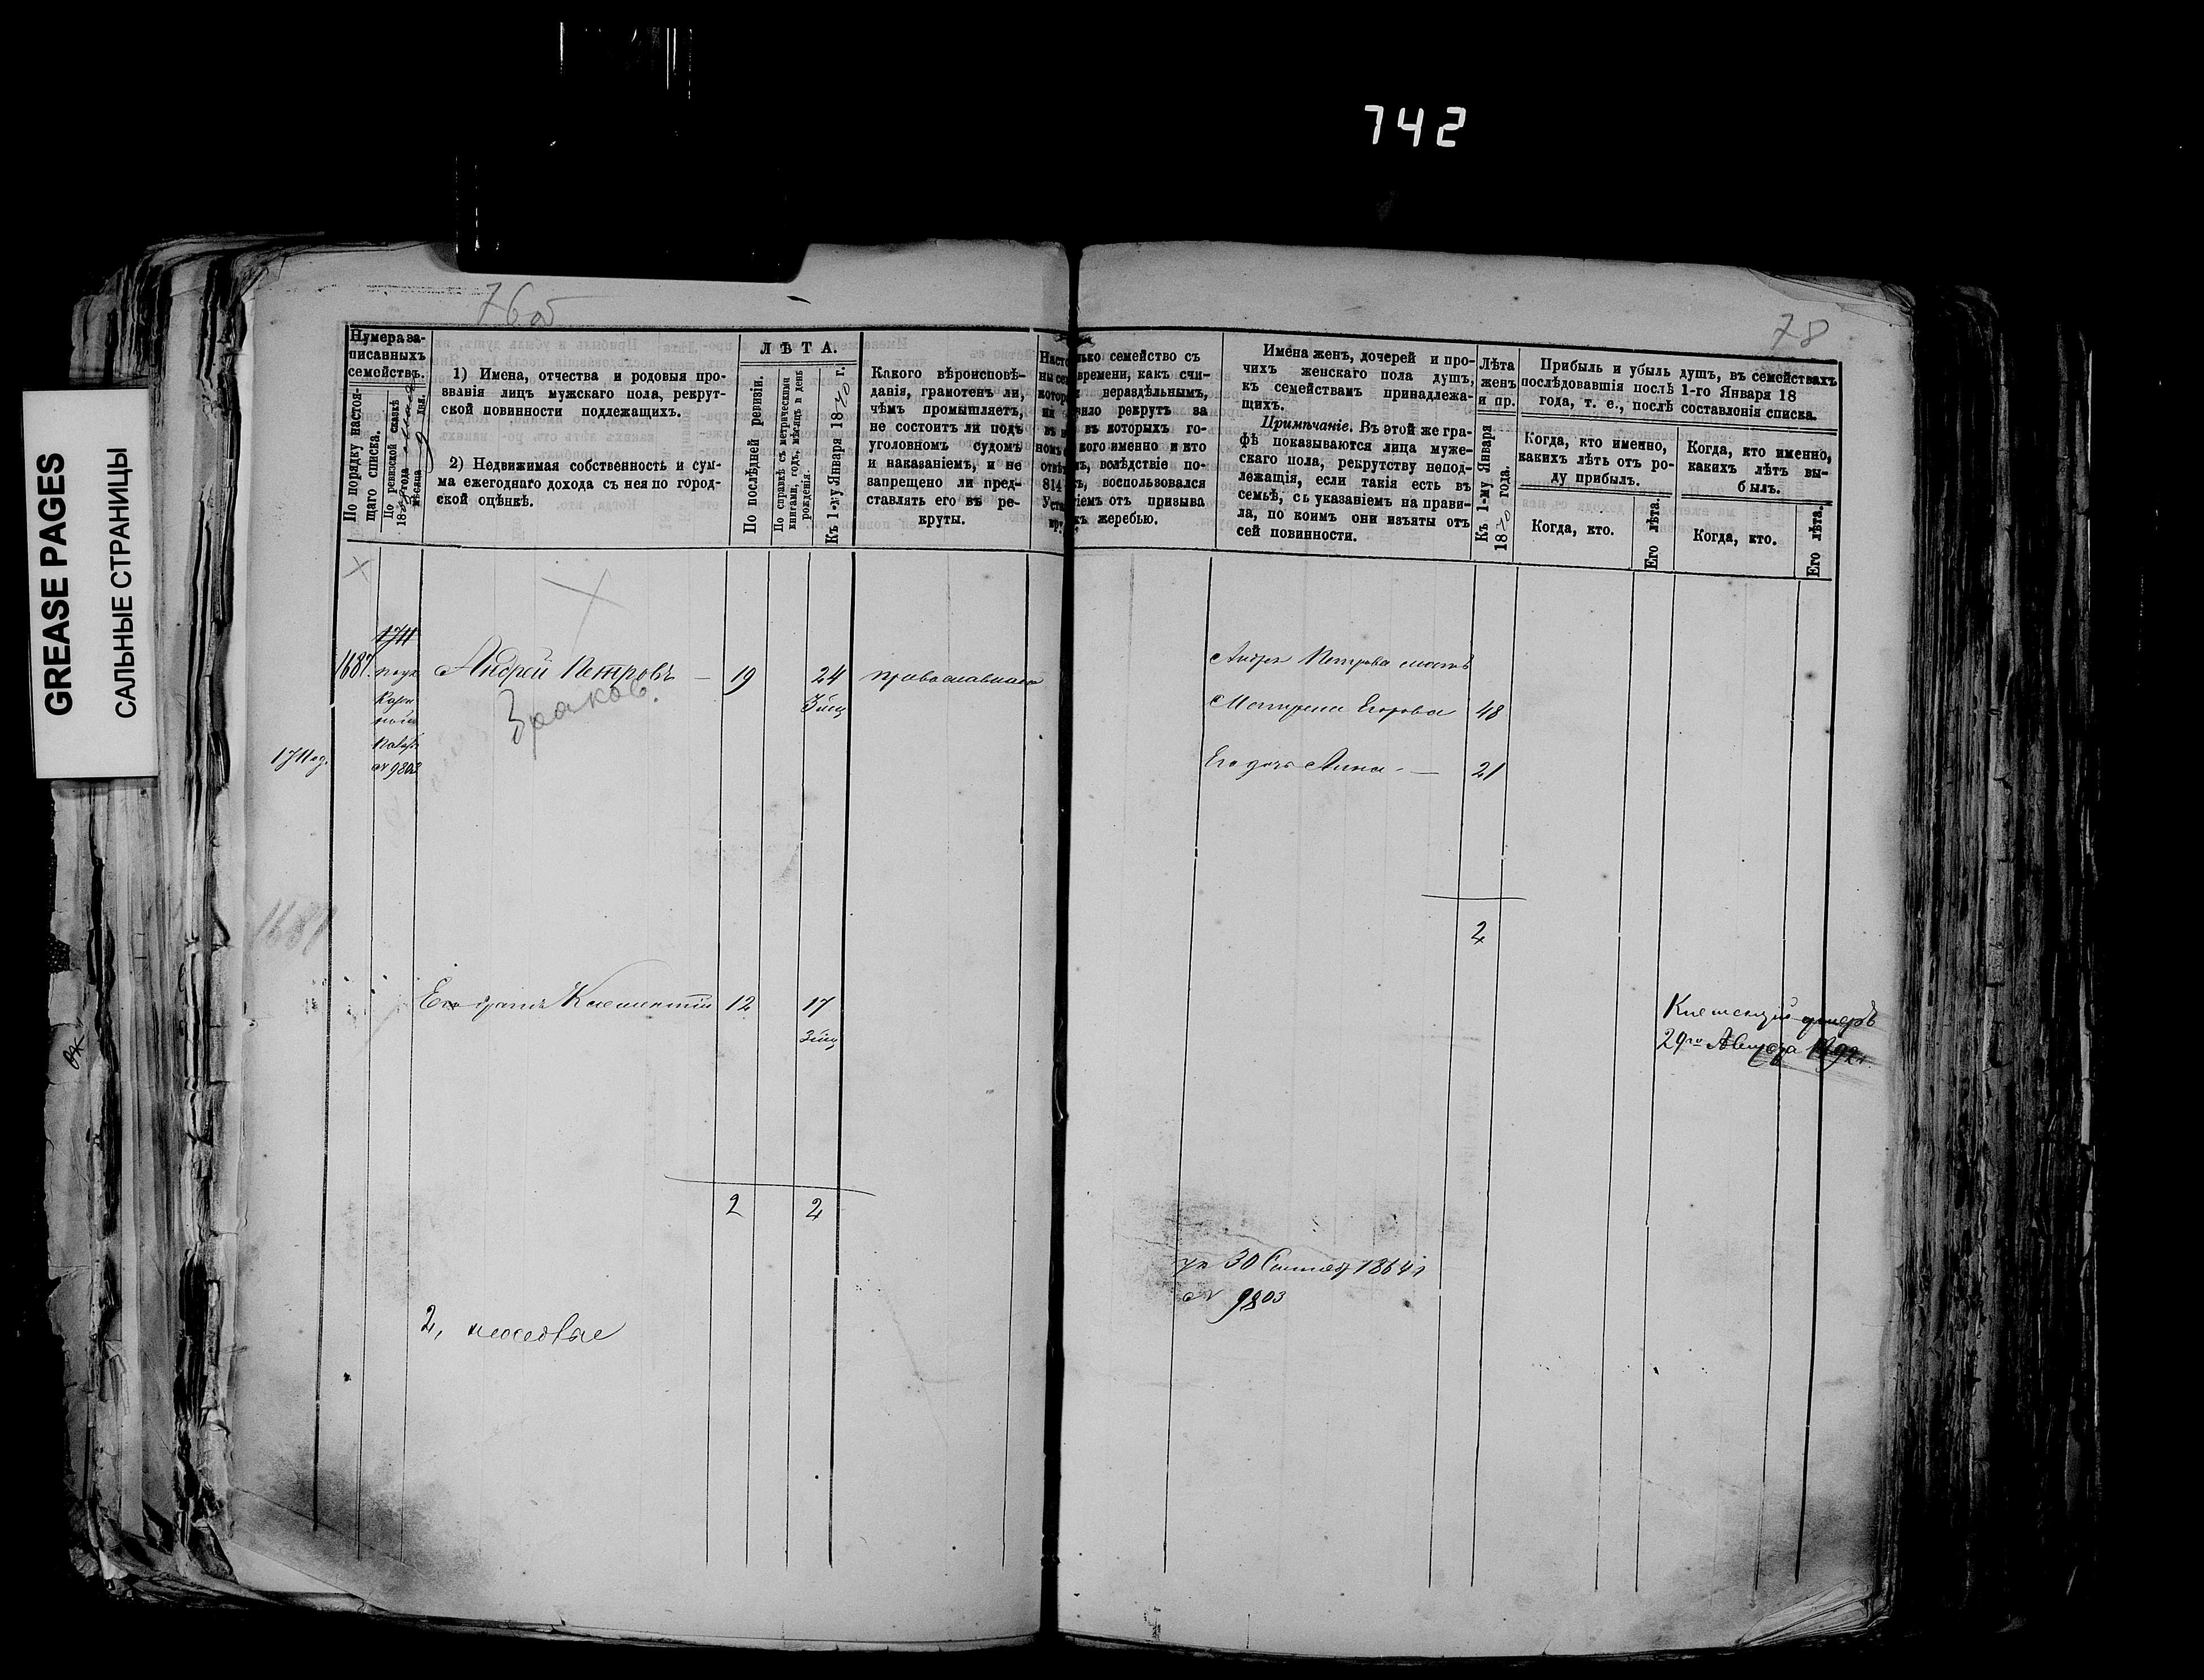 742
GREASE PAGES
САЛЬНЫЕ СТРАНИЦЫ
76об
78
Нумера за-
писанныхъ
семействъ.
По порядку настоя-
щаго списка.
По ревизской сказкѣ
18 года
мѣсяца дня.
1) Имена, отчества и родовыя про-
званія лицъ мужскаго пола, рекрут-
ской повинности подлежащихъ.
2) Недвижимая собственность и сум-
ма ежегоднаго дохода съ нея по город-
ской оцѣнкѣ.
ЛѢТА.
По послѣдней ревизіи.
По справкѣ съ метрическими
книгами, годъ, мѣсяцъ и день
рожденія.
Къ 1-му Января 1870 г.
Какого вѣроисповѣ-
данія, грамотенъ ли,
чѣмъ промышляетъ,
не состоитъ ли подъ
уголовномъ судомъ
и наказаніемъ, и не
запрещено ли пред-
ставлять его въ ре-
круты.
семейство съ
времени, какъ счи-
нераздѣльнымъ,
рекрутъ за
въ которыхъ го-
кого именно и кто
вслѣдствіе по-
воспользовался
отъ призыва
жеребью.
Имена женъ, дочерей и про-
чихъ женскаго пола душъ,
къ семействамъ принадлежа-
щихъ.
Примѣчаніе. Въ этой же гра-
фѣ показываются лица муже-
скаго пола, рекрутству непод-
лежащія, если такія есть въ
семьѣ, съ указаніемъ на прави-
ла, по коимъ они изъяты отъ
сей повинности.
Лѣта
женъ
и пр.
Къ 1-му Января
1870 года.
Прибыль и убыль душъ, въ семействахъ
послѣдовавшія послѣ 1-го Января 18
года, т. е., послѣ составленія списка.
Когда, кто именно,
какихъ лѣтъ отъ ро-
ду прибылъ.
Когда, кто.
Его лѣта.
Когда, кто именно,
какихъ лѣтъ вы-
былъ.
Когда, кто.
Его лѣта.
1711
1687.
№ 9803
1711
Андрей Петровъ — 19 24 православнаго
Зраков.
Андрея Петрова мать
Матрена Егорова 48
Его дочь Анна — 21
2
1687
Его братъ Климентій 12 17
Климентій умеръ
29го Августа 1892 г.
2 2
ук 30 Сентяб 1864 г
№ 9803
2,